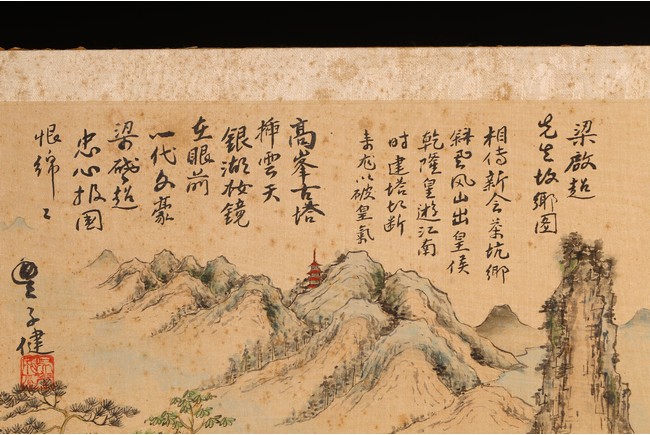 梁啟超
先生故鄉圖
相傳新会茶坑鄉
凤山出皇侯
乾隆皇游江南
时建塔切断
青龙以破皇氣
高峯古塔
插雲天
銀湖如鏡
在眼前
一代文豪
梁啟超
忠心报国
恨綿〻
豐子健